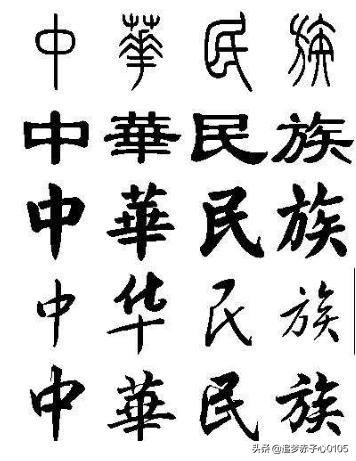 中華民族
中華民族
中華民族
中华民族
中華民族
头条 @追梦赤子心0105